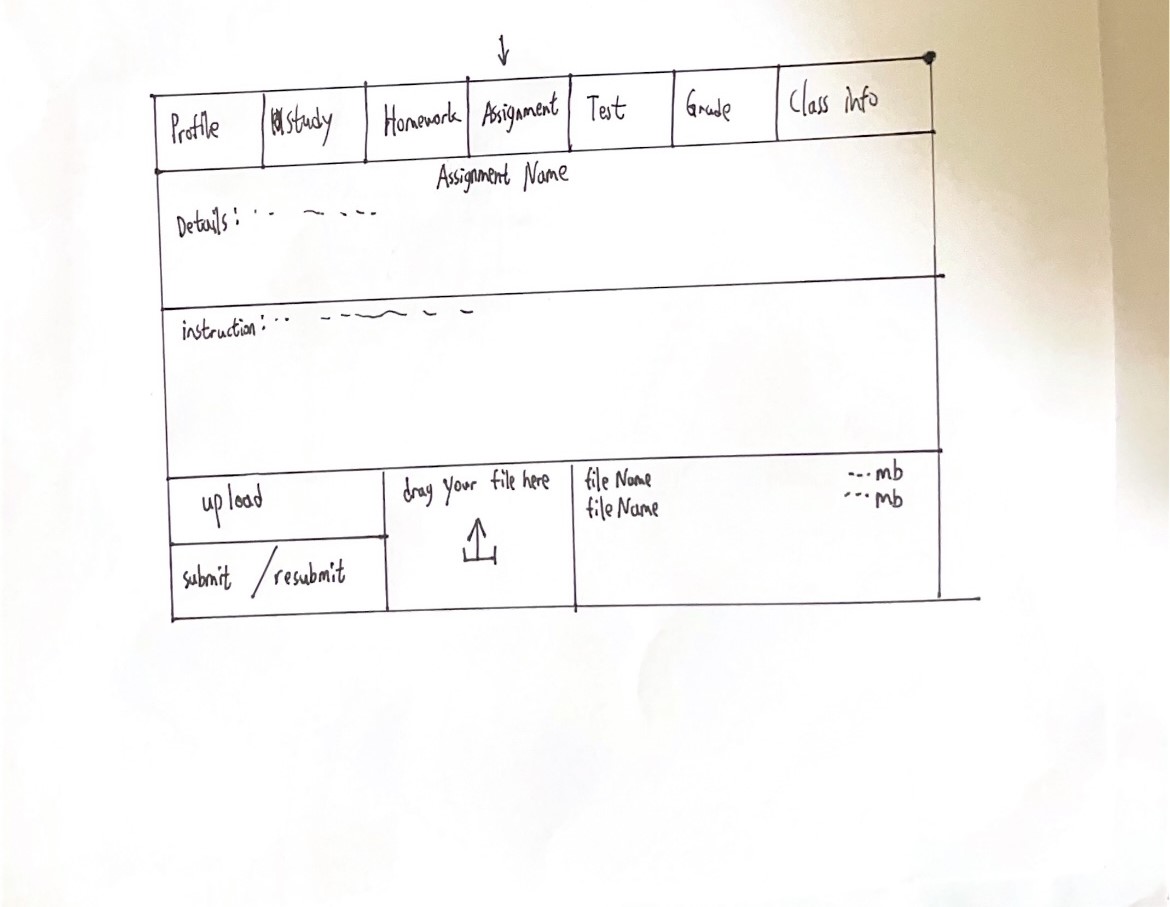 Profile study Homework Assignment Test Grade Class info
Assignment Name
Details:
instruction:
upload
submit / resubmit
drag your file here
file Name ---mb
file Name ---mb